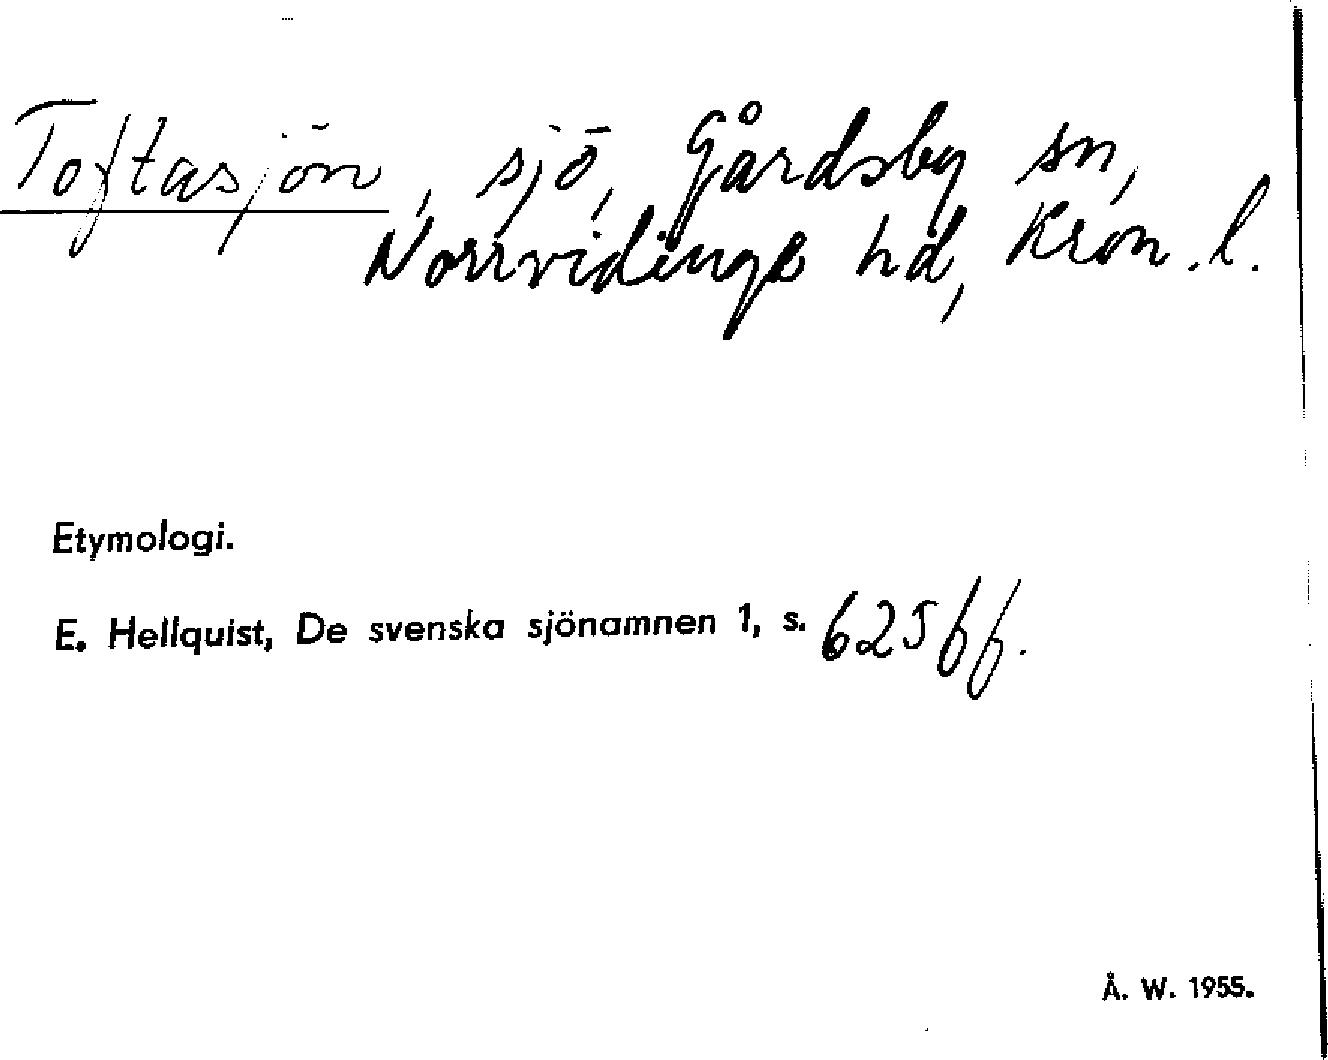 Toftasjön, sjö, Gårdsby sn,
Norrvidinge hd, Kron. l.
Etymologi.
E. Hellquist, De svenska sjönamnen 1, s. 625 ff.
Å. W. 1955.